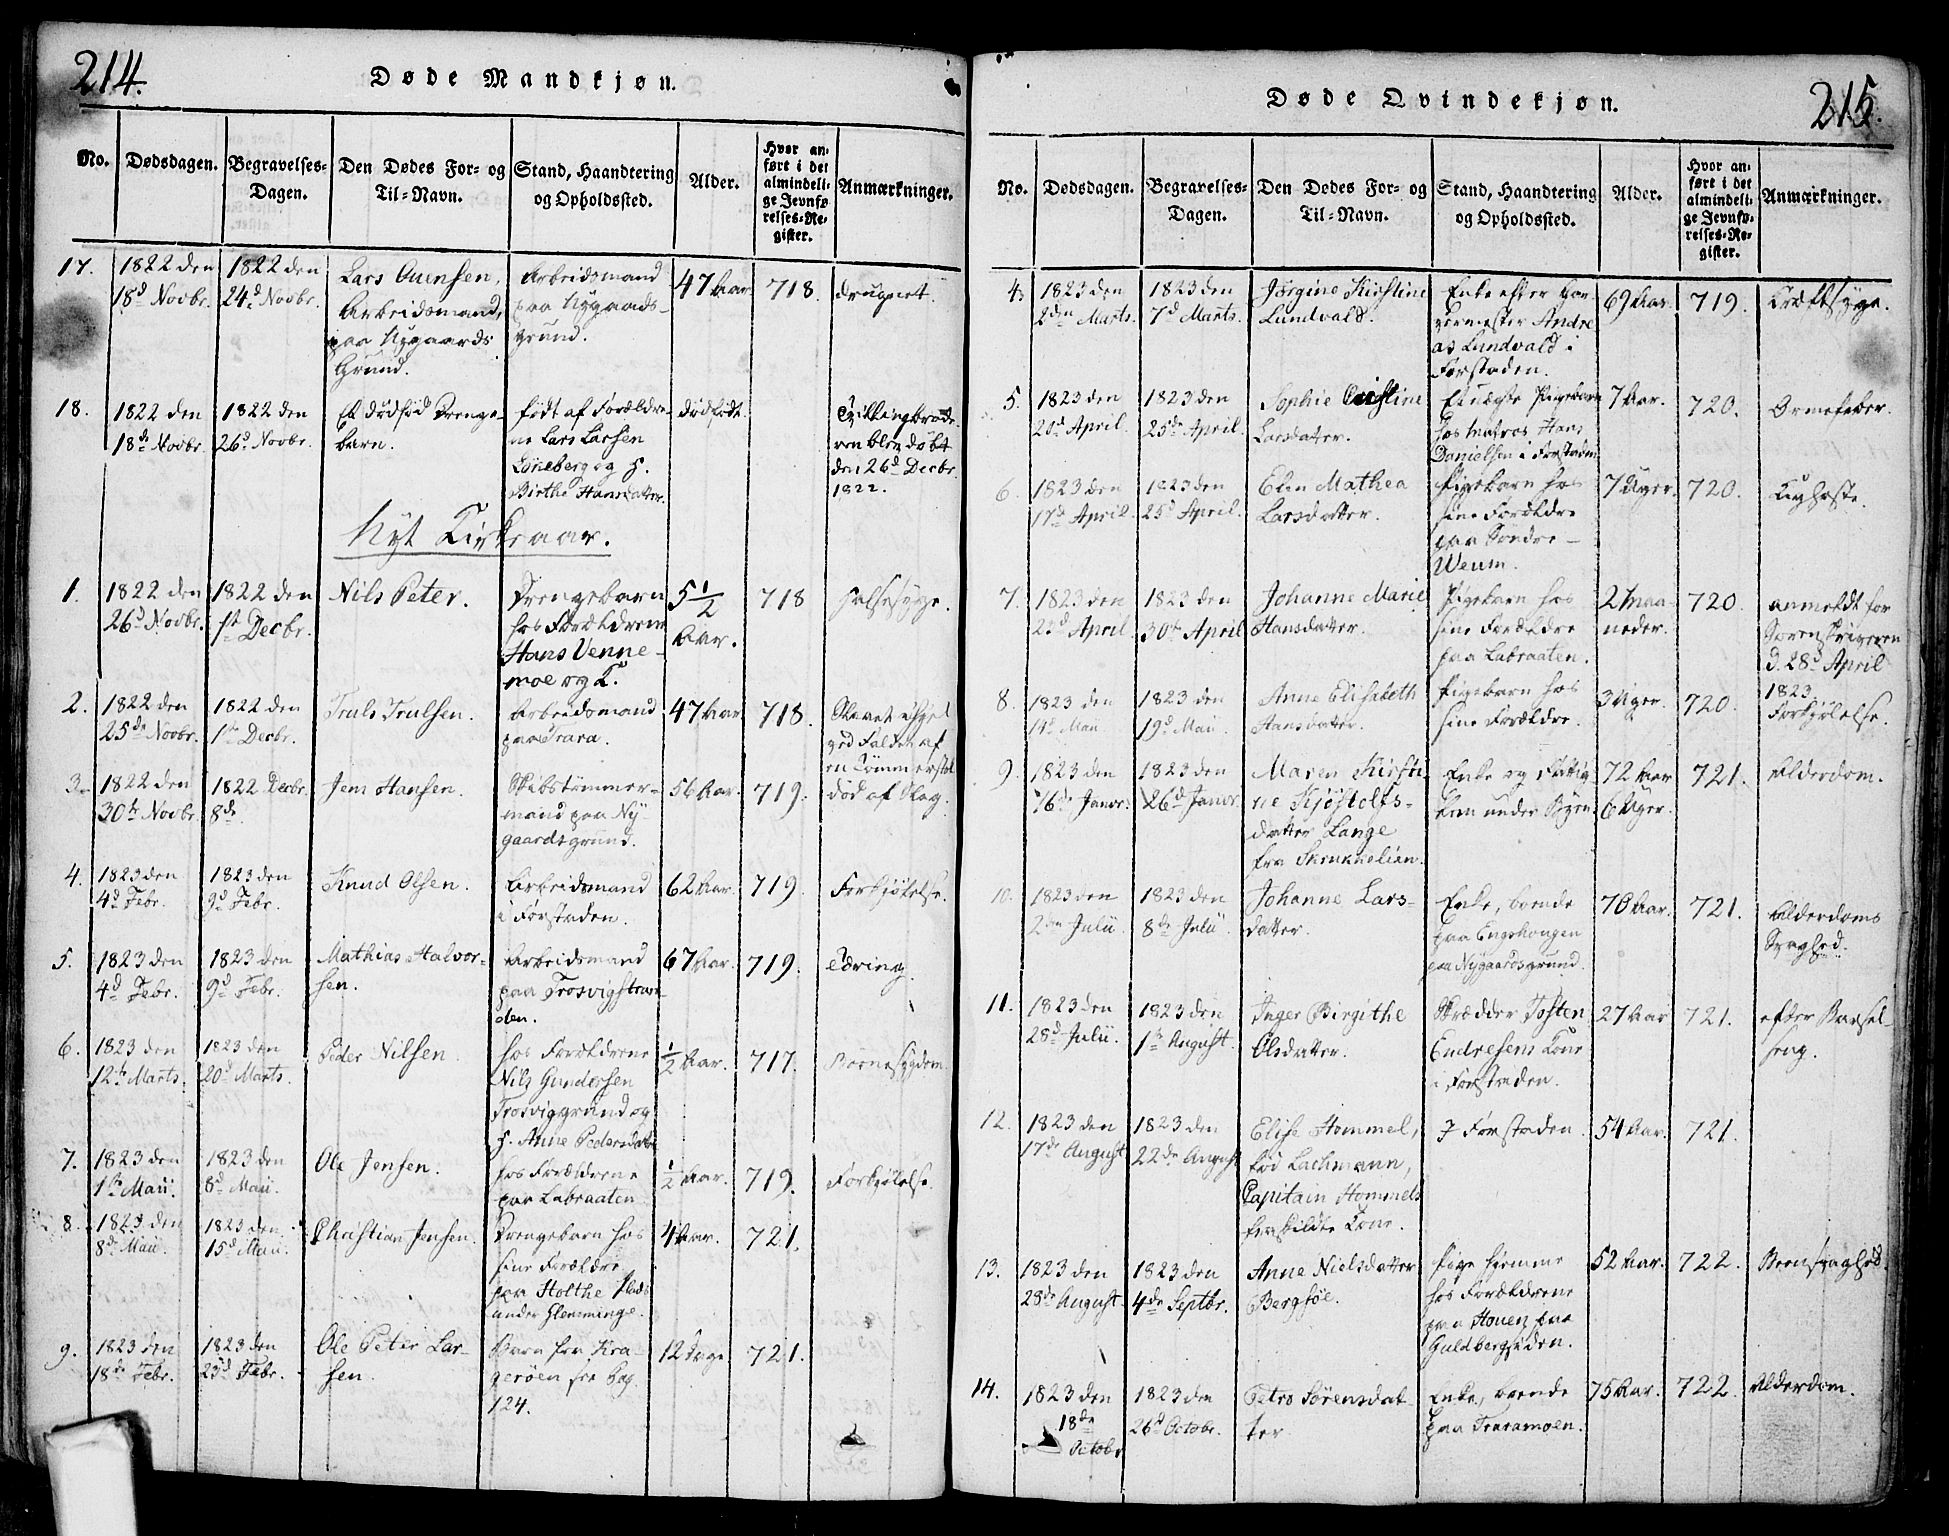 214.
Døde Mandkjøn.
No.
Dødsdagen.
Begravelses-
Dagen.
Den Dødes For- og
Til-Navn.
Stand, Haandtering
og Opholdssted.
Alder.
Hvor an-
ført i det
almindeli-
ge Jevnfø-
relses-Re-
gister.
Anmærkninger.
17.
1822 den
18d Novbr.
1822 den
24d Novbr.
Lars Ouensen,
Arbeidsmand,
paa Nygaards
Grund.
Arbeidsmand
paa Nygaards-
grund.
47 Aar
718.
druknet.
18.
1822 den
18de Novbr.
1822 den
26d Novbr.
Et dødfød Drenge-
barn.
født af Forældre-
ne Lars Larsen
Løneberg og H.
Birthe Hansdatter.
dødfødt.
Tvillingbrode-
ren blev døbt
den 26d Decbr
1822.
Nyt Kirkeaar.
1.
1822 den
26d Novbr.
1822 den
1ste Decbr.
Nils Peter.
Drengebarn
hos Forældrene
Hans Venne-
moe og K.
5 1/2
Aar.
718
Halssyge.
2.
1822 den
25de Novbr.
1822 den
1ste Decbr.
Truls Trulsen.
Arbeidsmand
paa Trara.
47 Aar
718.
Slaaet ihjel
ved Faldet af
en Tømmerstok
3.
1822 den
30te Novbr.
1822 Decbr.
8de.
Jens Hansen.
Skibstømmer-
mand paa Ny-
gaardsgrund.
56 Aar.
719.
død af Slag.
4.
1823 den
4d Febr.
1823 den
9d Febr.
Knud Olsen.
Arbeidsmand
i Forstaden.
62 Aar.
719.
Forkjølelse.
5.
1823 den
4d Febr.
1823 den
9d Febr.
Mathias Halvor-
sen.
Arbeidsmand
paa Trosvigstran-
den.
67 Aar.
719.
Tæring.
6.
1823 den
12te Marts.
1823 den
20d Marts.
Peder Nilsen.
hos Forældrene
Nils Gundersen
Trosviggrund og
H. Anne Pedersdatter
1/2 Aar.
717.
Børnesygdom.
7.
1823 den
1ste Maii.
1823 den
8d Maii.
Ole Jensen.
hos Forældrene
paa Labraaten.
1/2 Aar.
719.
Forkjølelse.
8.
1823 den
8de Maii.
1823 den
15d Maii.
Christian Jensen.
Drengebarn hos
sine Forældre
paa Holthe Plads
under Glemminge.
4 Aar.
721.
9.
1823 den
18de Febr.
1823 den
23d Febr.
Ole Peter Lar-
sen.
Barn fra Kra-
gerøen see Pag.
124.
12 Dage
721.
215.
Døde Qvindekjøn.
No.
Dødsdagen.
Begravelses-
Dagen.
Den Dødes For- og
Til-Navn.
Stand, Haandtering
og Opholdssted.
Alder.
Hvor an-
ført i det
almindeli-
ge Jevnfø-
relses-Re-
gister.
Anmærkninger.
4.
1823 den
2den Marts.
1823 den
7d Marts.
Jørgine Kirstine
Lundvald.
Enke efter Gar-
vermester Andre
as Lundvald i
Forstaden.
69 Aar.
719.
Kræftsyge.
5.
1823 den
20d April.
1823 den
25de April.
Sophie Christine
Larsdatter.
Et uægte Pigebarn
hos Matros Hans
Danielsen i Forstaden
7 Aar.
720.
Ormefeber.
6.
1823 den
17d April.
1823 den
25d April.
Elen Mathea
Larsdatter.
Pigebarn hos
sine Forældre
paa Søndre-
Weum.
7 Uger.
720.
Kighoste.
7.
1823 den
23d April.
1823 den
30te April
Johanne Marie
Hansdatter.
Pigebarn hos
sine Forældre
paa Labraaten.
2 Maa-
neder.
720.
anmeldt for
Sorenskriveren
d. 28d April
1823.
8.
1823 den
14d Maii
1823 den
19d Maii.
Anne Elisabeth
Hansdatter.
Pigebarn hos
sine Forældre.
3 Uger.
720.
Forkjølelse.
9.
1823 den
16de Janvr.
1823 den
26d Janvr.
Maren Kirsti-
ne Kjøstolfs-
datter Lange
fra Skrukkelien.
Enke og Fattig-
lem under Byen
72 Aar
6 Uger.
721.
Alderdom.
10.
1823 den
2den Julii
1823 den
8de Julii
Johanne Lars-
datter.
Enke, boende
paa Engehougen
paa Nygaardsgrund.
70 Aar.
721.
Alderdoms
Svaghed.
11.
1823 den
28d Julii.
1823 den
1ste August.
Inger Birgithe
Olsdatter.
Skrædder Tosten
Endresens Kone
i Forstaden.
27 Aar
721.
efter Barsel-
seng.
12.
1823 den
17de August
1823 den
22de August
Elise Hommel,
fød Lachmann,
Capitain Hommels
fraskildte Kone.
I Forstaden.
54 Aar.
721.
13.
1823 den
28de August.
1823 den
4de Septbr.
Anne Nielsdatter
Bergsøe.
Pige hjemme
hos Forældrene
paa Houen paa
Guldbergsiden.
52 Aar.
722.
14.
1823 den
18de
Octobr
1823 den
26d Octobr.
Petro Sørensdat-
ter
Enke, boende
paa Traramoen.
75 Aar.
722.
Alderdom.